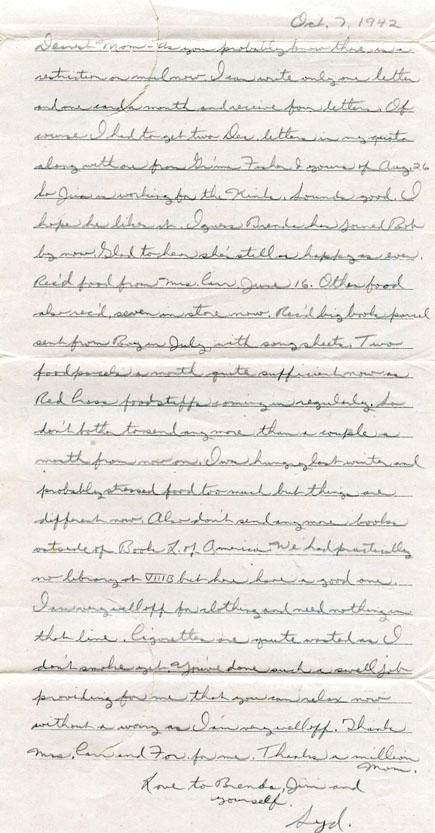 Oct. 7, 1942
Dearest Mom - As you probably know there is a
restriction on mail now. I can write only one letter
and one card a month and receive four letters. Of
course I had to get two Dec. letters in my quota
along with one from Gr'ma Fisher & yours of Aug. 26
So Jim is working for the Kents. Sounds good. I
hope he likes it. I guess Brenda has joined Bob
by now. Glad to hear she's still as happy as ever.
Rec'd food from Mrs. Carr June 16. Other food
also rec'd, seven in store now. Rec'd big books parcel
sent from in July, with song sheets. Two
food parcels a month quite sufficient now as
Red Cross foodstuffs coming in regularly. So
don't bother to send any more than a couple a
month from now on. I was hungry last winter and
probably stressed food too much but things are
different now. Also don't send any more books
outside of Book L. of America. We had practically
no library at VIIIB but here have a good one.
I am very well off for clothing and need nothing in
that line. Cigarettes are quite wasted as I
don't smoke yet. You've done such a swell job
providing for me that you can relax now
without a worry as I am very well off. Thank
Mrs. Carr and for me. Thanks a million
Mom.
Love to Brenda, Jim and
yourself.
Syd.